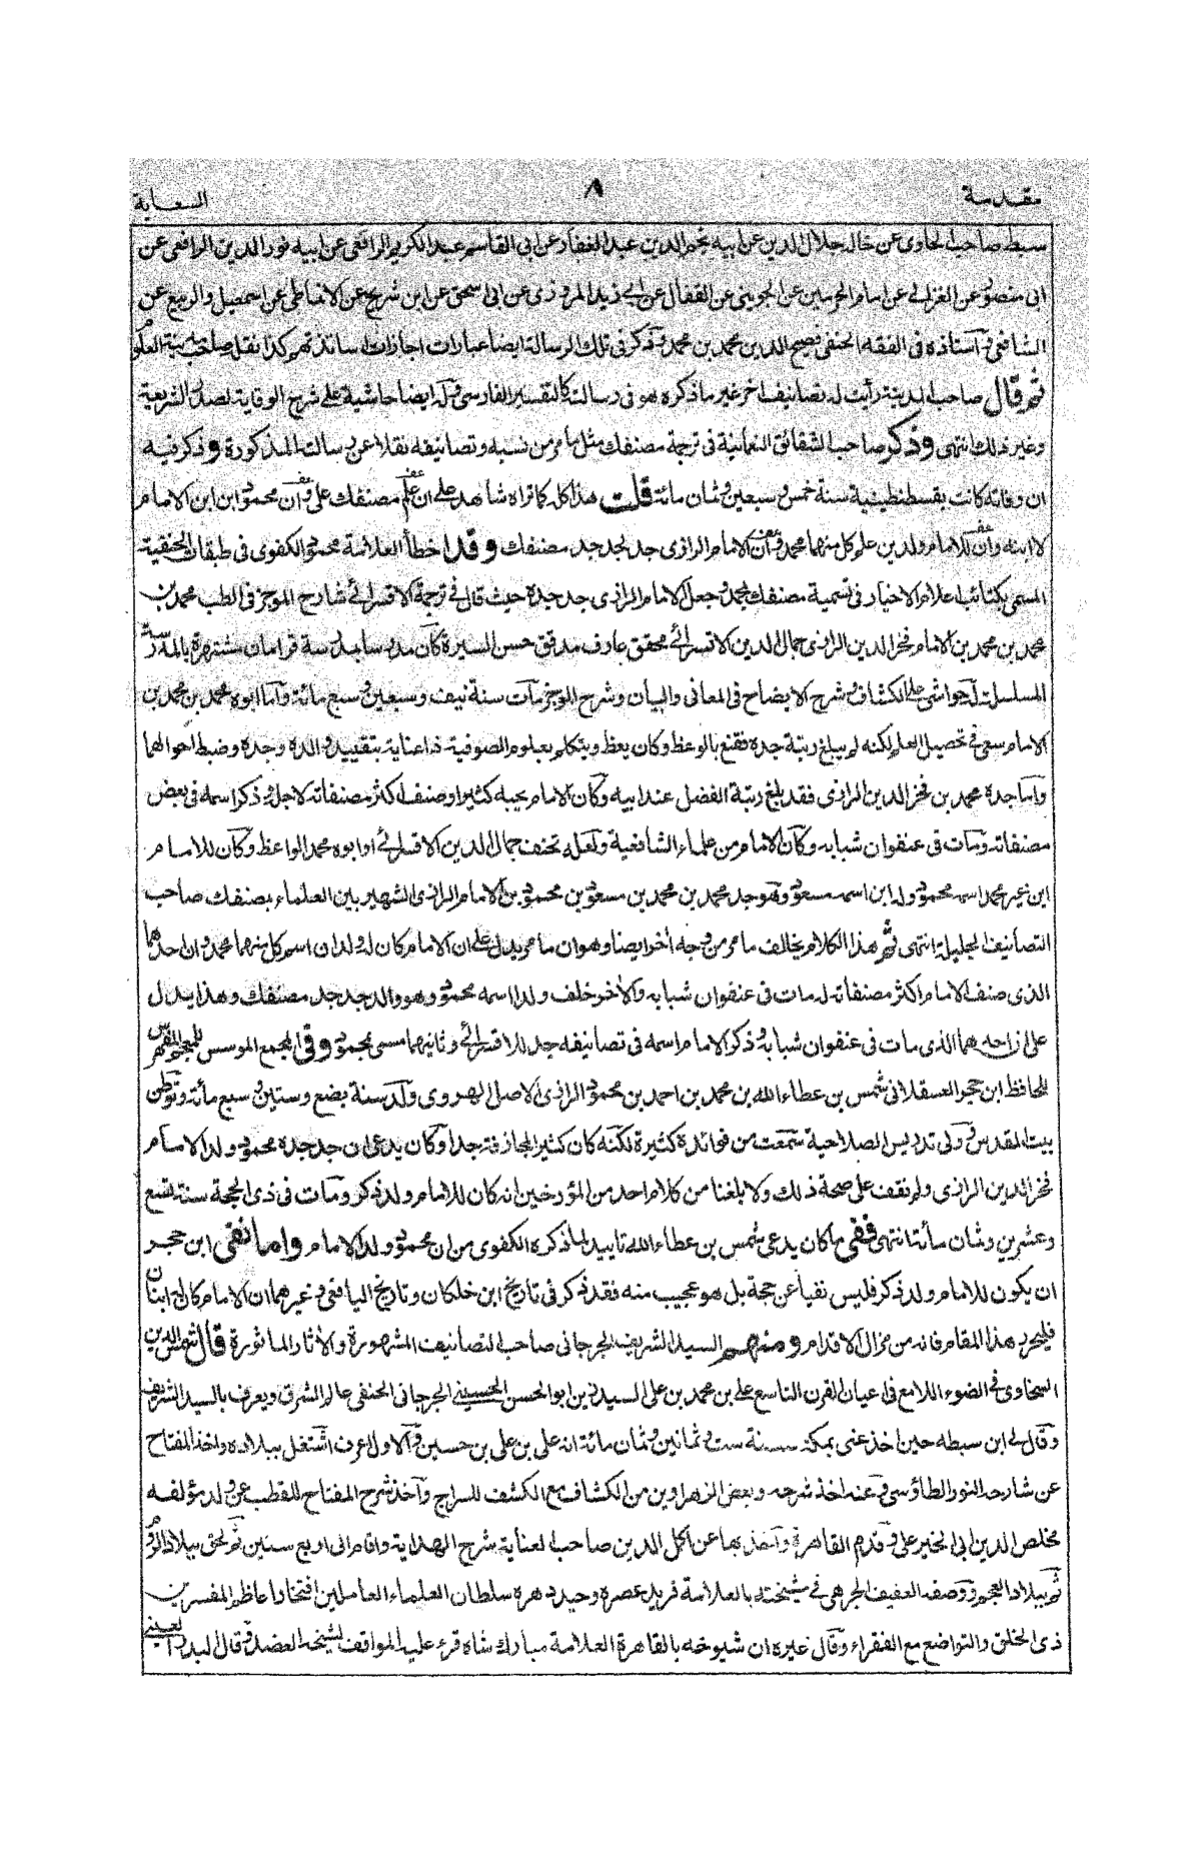 مقدمة ٨ السعاية
سبط صاحب الحاوى عن خاله جلال الدين عن ابيه نجم الدين عبد الغفار عن ابى القاسم عبد الكريم الرافعى عن ابيه نور الدين الرافعى عن
ابى منصور عن الغزالى عن امام الحرمين عن الجوينى عن القفال عن ابى زيد المروزى عن ابى اسحق عن ابن شريح عن الانماطى عن اسمعيل والربيع عن
الشافعى وآستاذه فى الفقه الحنفى فصيح الدين محمد بن محمد وذكر فى تلك الرسالة ايضا عبارات اجازات اساتذتهم كذا نقل صاحب مدينة العلوم
ثم قال صاحب المدينة رأيت له تصانيف اخر غير ما ذكره هو فى رسالته كالتفسير الفارسى وله ايضا حاشية على شرح الوقاية لصدر الشريعة
وغير ذلك انتهى وذكر صاحب الشقائق النعمانية فى ترجمة مصنفك مثل ما مر من نسبه وتصانيفه نقلا عن رسالته المذكورة وذكر فيه
ان وفاته كانت بقسطنطينية سنة خمس وسبعين وثمان مائة قلت هذا كله كما تراه شاهد على ان علم مصنفك على وآن محمود ابن ابن الامام
لا ابنه وآن للامام ولدين علم كل منهما محمد وآن الامام الرازى جد لجد جد مصنفك وقد اخطأ العلامة محمود الكفوى فى طبقات الحنفية
المسمى بكتائب اعلام الاخيار فى تسمية مصنفك بمحمد وجعل الامام الرازى جد جده حيث قال فى ترجمة الاقسرائى شارح الموجز فى الطب محمد بن
محمد بن محمد بن الامام فخر الدين الرازى جمال الدين الاقسرائى محقق عارف مدقق حسن السيرة كان مدرسا بمدرسة قرامان مشتهرة بالمدرسة
المسلسلة له حواشى على الكشاف وشرح الايضاح فى المعانى والبيان وشرح الموجز مات سنة نيف وسبعين وسبع مائة وآما ابوه محمد بن محمد بن
الامام سعى فى تحصيل العلم لكنه لم يبلغ رتبة جده فقنع بالوعظ وكان يعظ ويتكلم بعلوم الصوفية ذا عناية بتقييد والده وجده وضبط احوالهما
وآما جده محمد بن فخر الدين الرازى فقد بلغ رتبة الفضل عند ابيه وكان الامام يحبه كثيرا وصنف اكثر مصنفاته لاجله وذكر اسمه فى بعض
مصنفاته ومات فى عنفوان شبابه وكان الامام من علماء الشافعية ولعله تحنف جمال الدين الاقسرائى او ابوه محمد الواعظ وكان للامام
ابن غير محمد اسمه محمود وله ابن اسمه مسعود وهو جد محمد بن محمد بن مسعود بن محمود بن الامام الرازى الشهير بين العلماء بمصنفك صاحب
التصانيف الجليلة انتهى ثم هذا الكلام يخالف ما مر من وجه آخر ايضا وهو ان ما مر يدل على ان الامام كان له ولدان اسم كل منهما محمد وان احدهما
الذى صنف الامام اكثر مصنفاته له مات فى عنفوان شبابه والآخر خلف ولدا اسمه محمود وهو والد جد جد مصنفك وهذا يدل
على ان احدهما الذى مات فى عنفوان شبابه وذكر الامام اسمه فى تصانيفه جد للاقسرائى وثانيهما مسمى بمحمود وفى المجمع الموسس للمعجم المفهرس
للحافظ ابن حجر العسقلانى شمس بن عطاء الله بن محمد بن احمد بن محمود الرازى الاصل الهروى ولد سنة بضع وستين وسبع مائة وتوطن
بيت المقدس وولى تدريس الصلاحية سمعت من فوائده كثيرة لكنه كان كثير المجازفة جدا وكان يدعى ان جد جده محمود ولد الامام
فخر الدين الرازى ولم نقف على صحة ذلك ولا بلغنا من كلام احد من المؤرخين انه كان للامام ولد ذكر ومات فى ذى الحجة سنة تسع
وعشرين وثمان مائة انتهى ففى ما كان يدعى شمس بن عطاء الله تاييد لما ذكره الكفوى من ان محمود ولد الامام واما نفى ابن حجر
ان يكون للامام ولد ذكر فليس نفيا عن حجة بل هو عجيب منه فقد ذكر فى تاريخ ابن خلكان وتاريخ اليافعى وغيرهما ان الامام كان له ابنان
فليحرر هذا المقام فانه من مزال الاقدام ومنهم السيد الشريف الجرجانى صاحب التصانيف المشهورة والآثار الماثورة قال شمس الدين
السخاوى فى الضوء اللامع فى اعيان القرن التاسع على بن محمد بن على السيد زين ابو الحسن الحسينى الجرجانى الحنفى عالم الشرق ويعرف بالسيد الشريف
وقال لى ابن سبطه حين اخذ عنى بمكة سنة ست وثمانين وثمان مائة انه على بن على بن حسين وآلاول اعرف اشتغل ببلاده واخذ المفتاح
عن شارحه النور الطاؤسى وعنه اخذ شرحه وبعض الزهراوين من الكشاف مع الكشف للسراج وآخذ شرح المفتاح للقطب عن ولد مؤلفه
مخلص الدين ابى الخير على وقدم القاهرة وآخذ بها عن اكمل الدين صاحب العناية شرح الهداية واقام الى اربع سنين ثم لحق ببلاد الروم
ثم ببلاد العجم ووصفه العفيف الجرهى فى مشيخته بالعلامة فريد عصره وحيد دهره سلطان العلماء العاملين افتخار اعاظم المفسرين
ذى الخلق والتواضع مع الفقراء وقال غيره ان شيوخه بالقاهرة العلامة مبارك شاه قرء عليه المواقف لشيخه العضد وقال البدر العينى